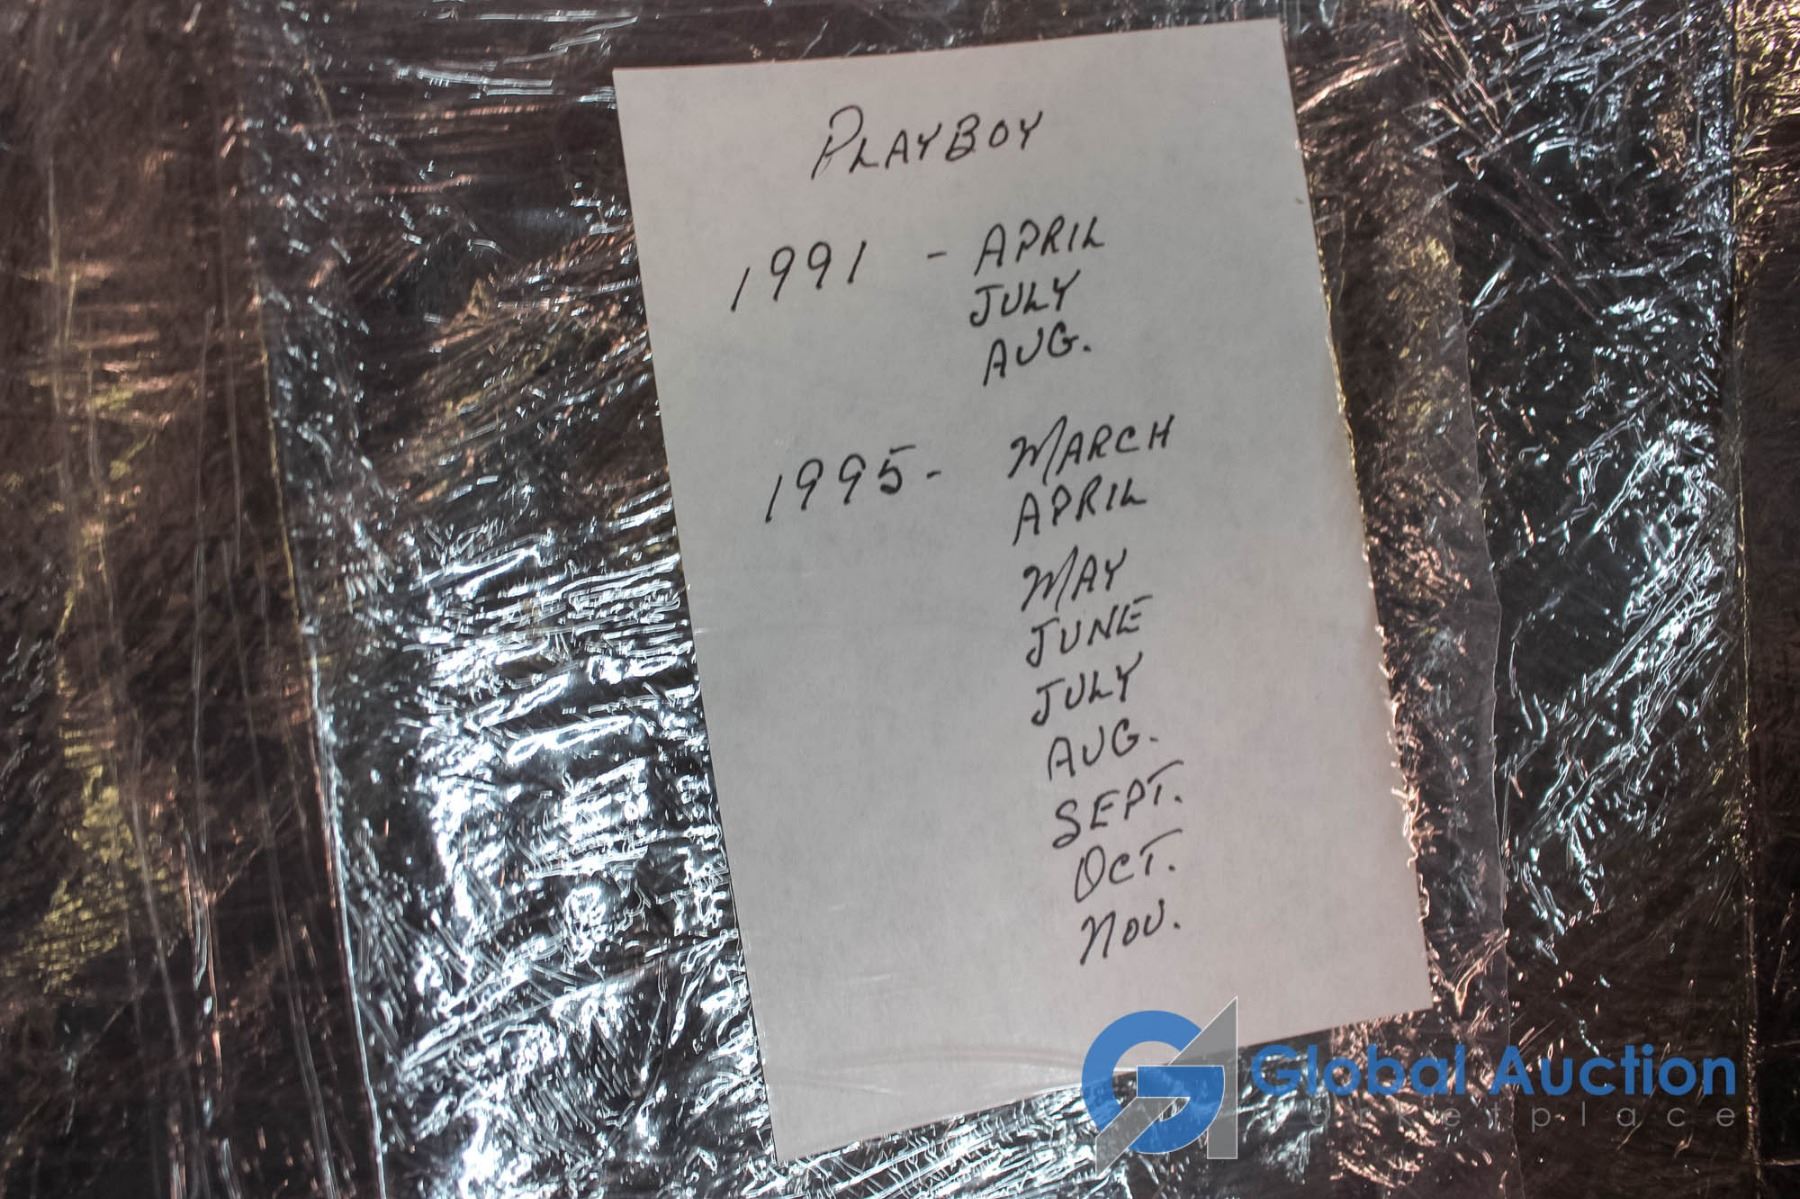 PLAYBOY
1991 - APRIL
JULY
AUG.
1995- MARCH
APRIL
MAY
JUNE
JULY
AUG.
SEPT.
OCT.
NOV.
Global Auction
Marketplace